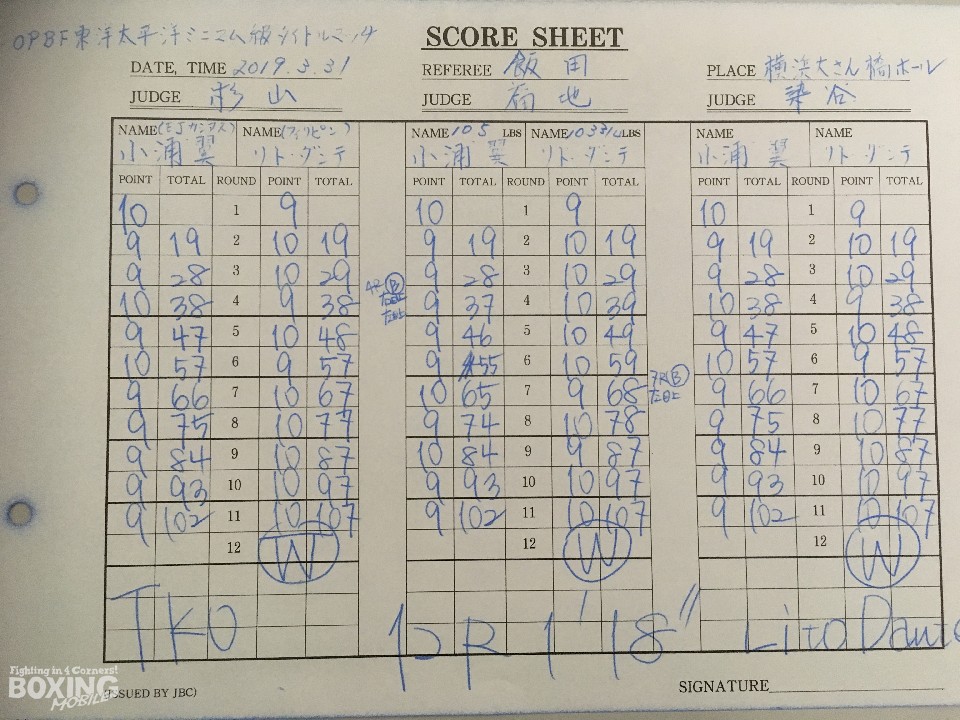 OPBF東洋太平洋ミニマム級タイトルマッチ
SCORE SHEET
DATE, TIME 2019.3.31 REFEREE 飯田 PLACE 横浜大さん橋ホール
JUDGE 杉山 JUDGE 福地 JUDGE 染谷
NAME (E.Jカシアス) NAME (フィリピン) NAME 105 LBS NAME 103 3/4 LBS NAME NAME
小浦翼 リト・ダンテ 小浦翼 リト・ダンテ 小浦翼 リト・ダンテ
POINT TOTAL ROUND POINT TOTAL POINT TOTAL ROUND POINT TOTAL POINT TOTAL ROUND POINT TOTAL
10 1 9 10 1 9 10 1 9
9 19 2 10 19 9 19 2 10 19 9 19 2 10 19
9 28 3 10 29 9 28 3 10 29 9 28 3 10 29
10 38 4 9 38 4R B 左目上 9 37 4 10 39 10 38 4 9 38
9 47 5 10 48 9 46 5 10 49 9 47 5 10 48
10 57 6 9 57 9 55 6 10 59 10 57 6 9 57
9 66 7 10 67 10 65 7 9 68 7R B 左目上 9 66 7 10 67
9 75 8 10 77 9 74 8 10 78 9 75 8 10 77
9 84 9 10 87 10 84 9 9 87 9 84 9 10 87
9 93 10 10 97 9 93 10 10 97 9 93 10 10 97
9 102 11 10 107 9 102 11 10 107 9 102 11 10 107
12 W 12 W 12 W
TKO 12R 1'18" Lito Dante
Fighting in 4 Corners!
BOXING
MOBILE
ISSUED BY JBC) SIGNATURE